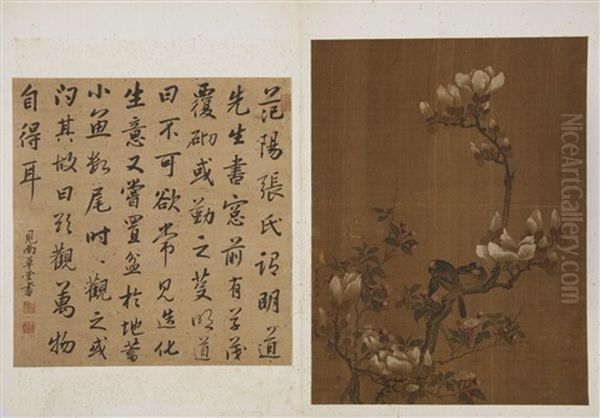 范陽張氏謂明道
先生書窓前有草茂
覆砌或勸之芟明道
曰不可欲常見造化
生意又嘗置盆於地蓄
小魚數尾時〻觀之或
問其故曰欲觀萬物
自得耳
見南草堂書
NiceArtGallery.com